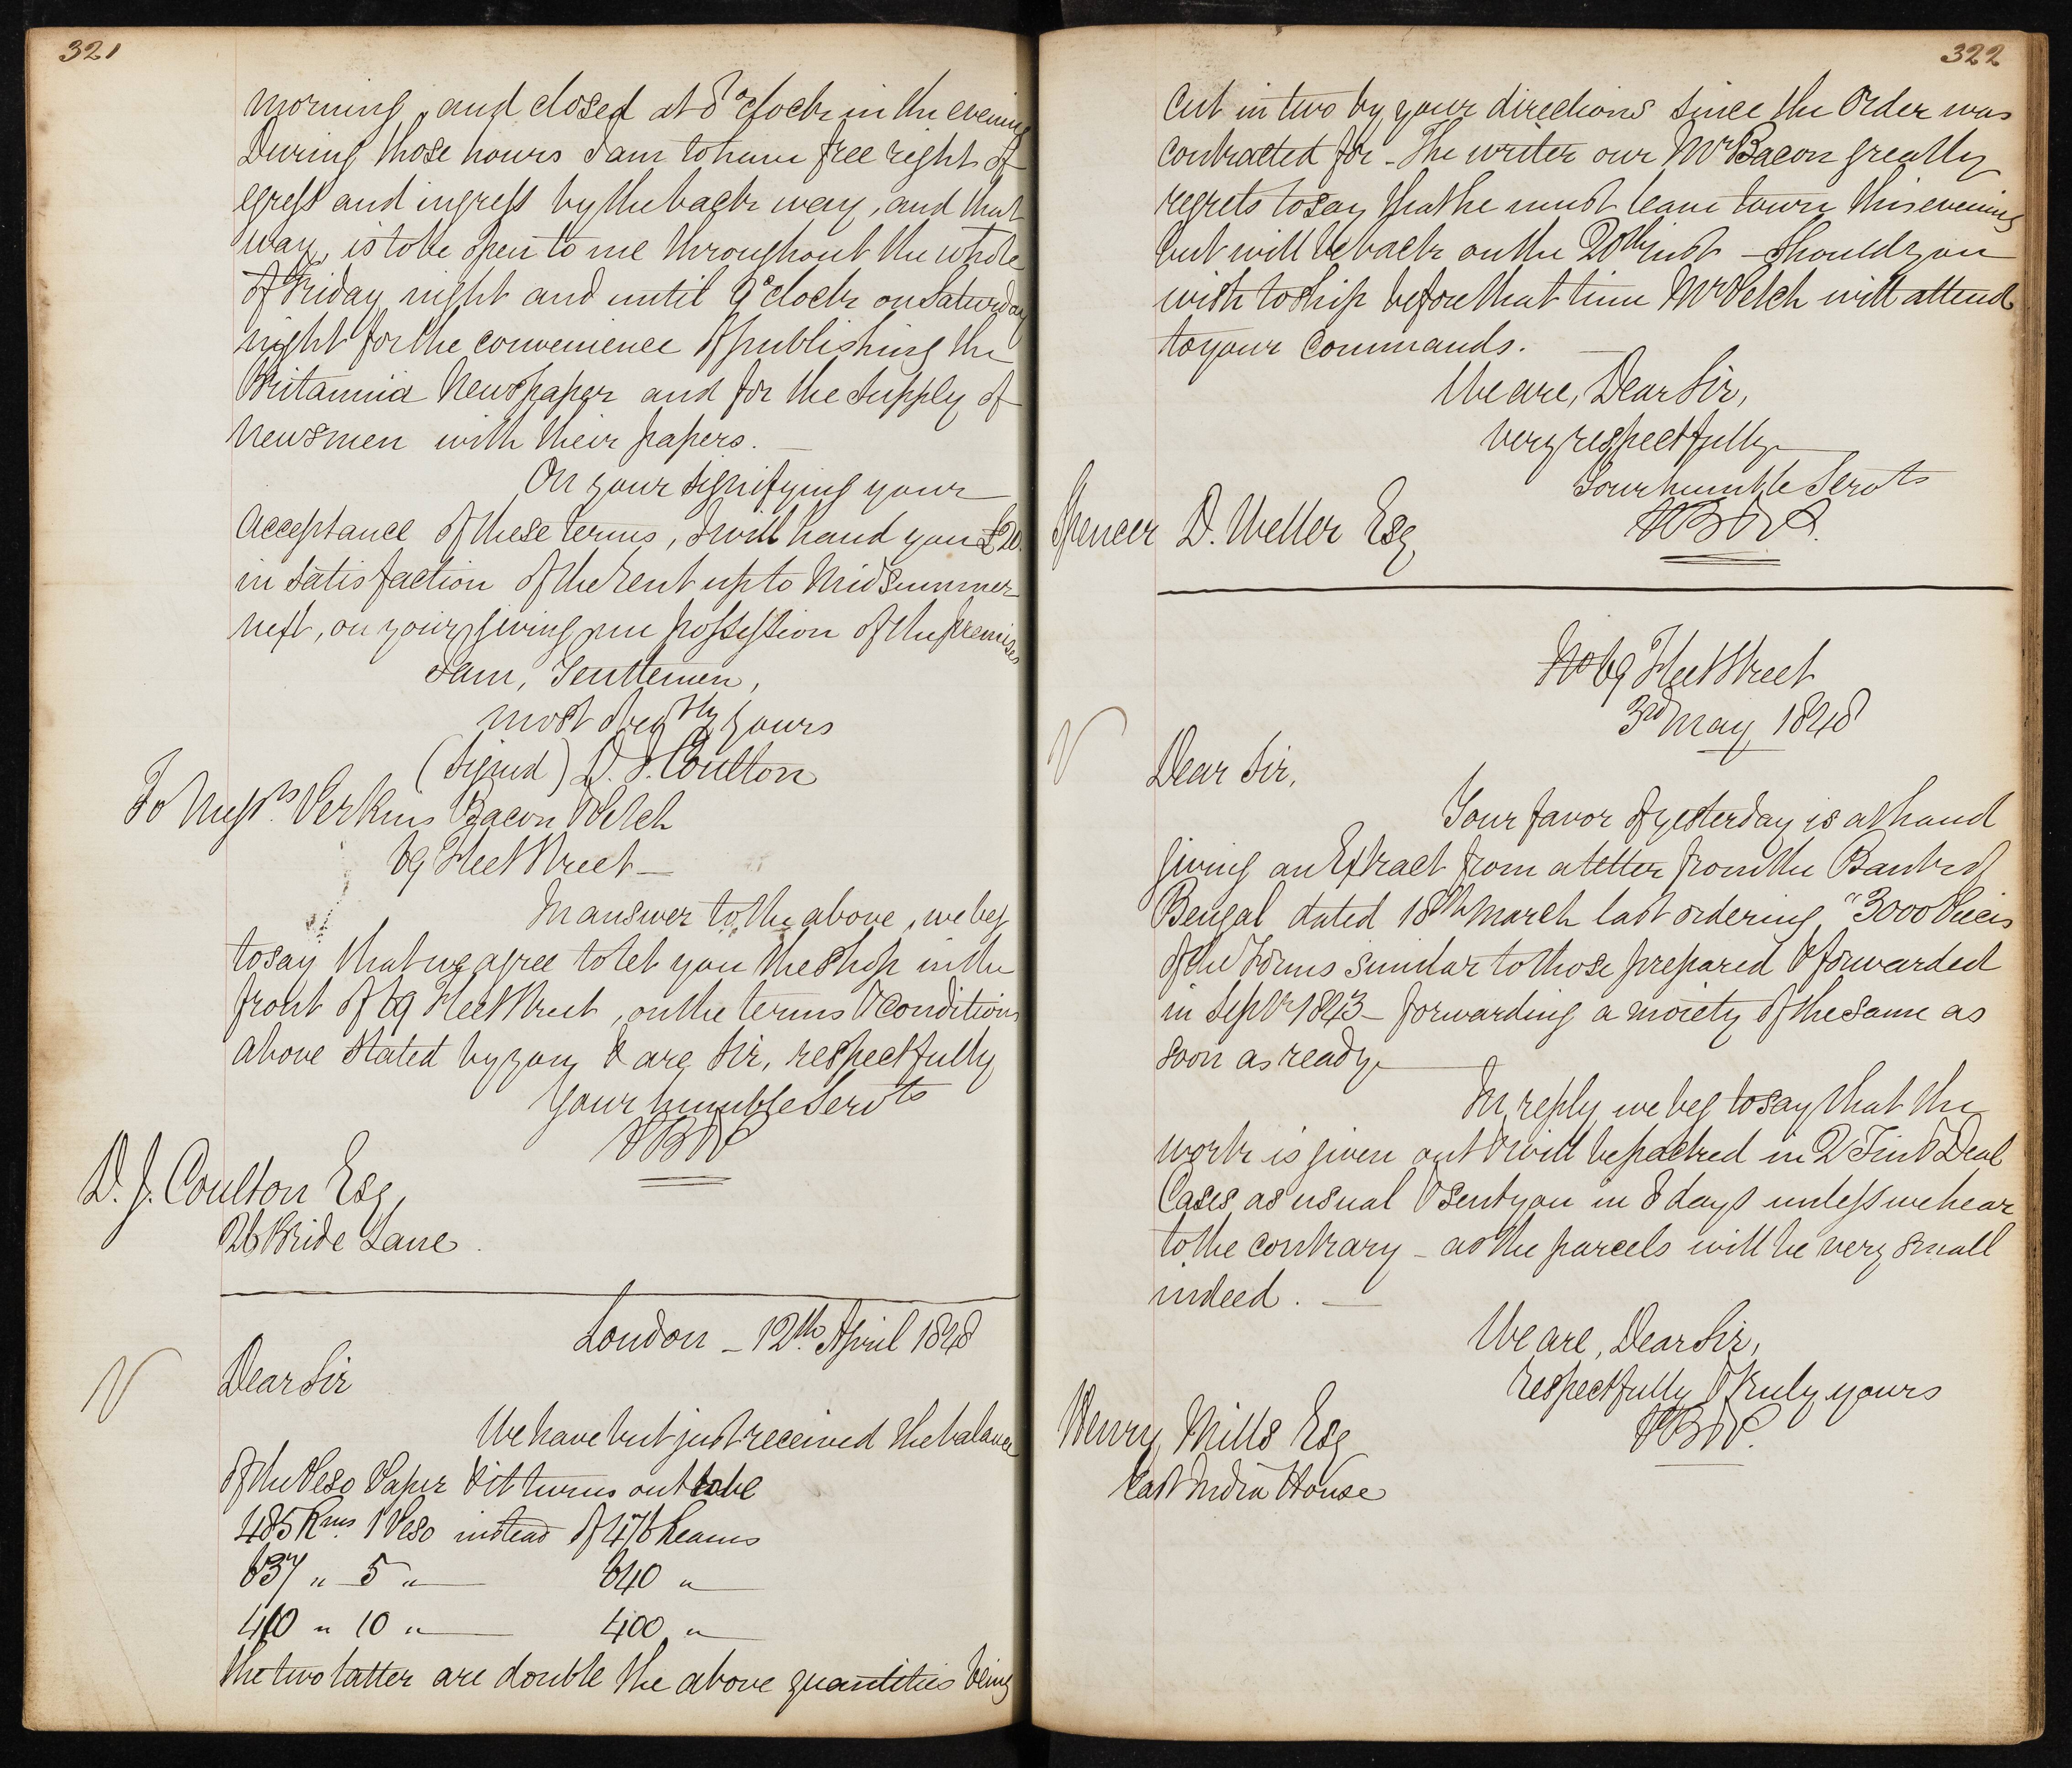 321
morning, and closed at 8 o'clock in the evening
During those hours I am to have free right of
egress and ingress by the back way, and that
way, is to be open to me throughout the whole
of Friday night and until 9 o'clock on Saturday
night for the convenience of publishing the
Britannia Newspaper and for the supply of
Newsmen with their papers. —
On your signifying your
acceptance of these terms, I will hand you £20.
in satisfaction of the rent up to Midsummer
next, on your giving me possession of the premises
I am, Gentlemen,
most obedtly yours
(Signed) D. J. Coulton
To Messrs. Perkins Bacon & Petch
69 Fleet Street —
In answer to the above, we beg
to say that we agree to let you the Shop in the
front of 69 Fleet Street, on the terms & conditions
above stated by you & are Sir, respectfully
Your humble Servts
PB&P
D. J. Coulton Esq
26 Bride Lane.
London — 12th. April 1848
Dear Sir
We have but just received the balance
of the Peso Paper & it turns out to be
485 Rms. 1 Peso instead of 476 Reams
637 " 5 " — 640 " —
410 " 10 " — 400 " —
the two latter are double the above quantities being
322
cut in two by your directions since the Order was
contracted for — The writer our Mr Bacon greatly
regrets to say that he must leave town this evening
but will be back on the 20th inst — Should you
wish to ship before that time Mr Petch will attend
to your Commands. —
We are, Dear Sir,
very respectfully
Your humble Servts
PB&P.
Spencer D. Weller Esq
No 69 Fleet Street
3rd May 1848
Dear Sir,
Your favor of yesterday is at hand
giving an Extract from a letter from the Bank of
Bengal dated 18th March last ordering "3000 Pieces
of the Forms similar to those prepared & forwarded
in Septr 1843 — forwarding a moiety of the same as
soon as ready —
In reply we beg to say that the
work is given out & will be packed in 2 Tin & Deal
Cases as usual & sent you in 8 days unless we hear
to the contrary — as the parcels will be very small
indeed. —
We are, Dear Sir,
respectfully & truly yours
PB&P.
Henry Mills Esq
East India House